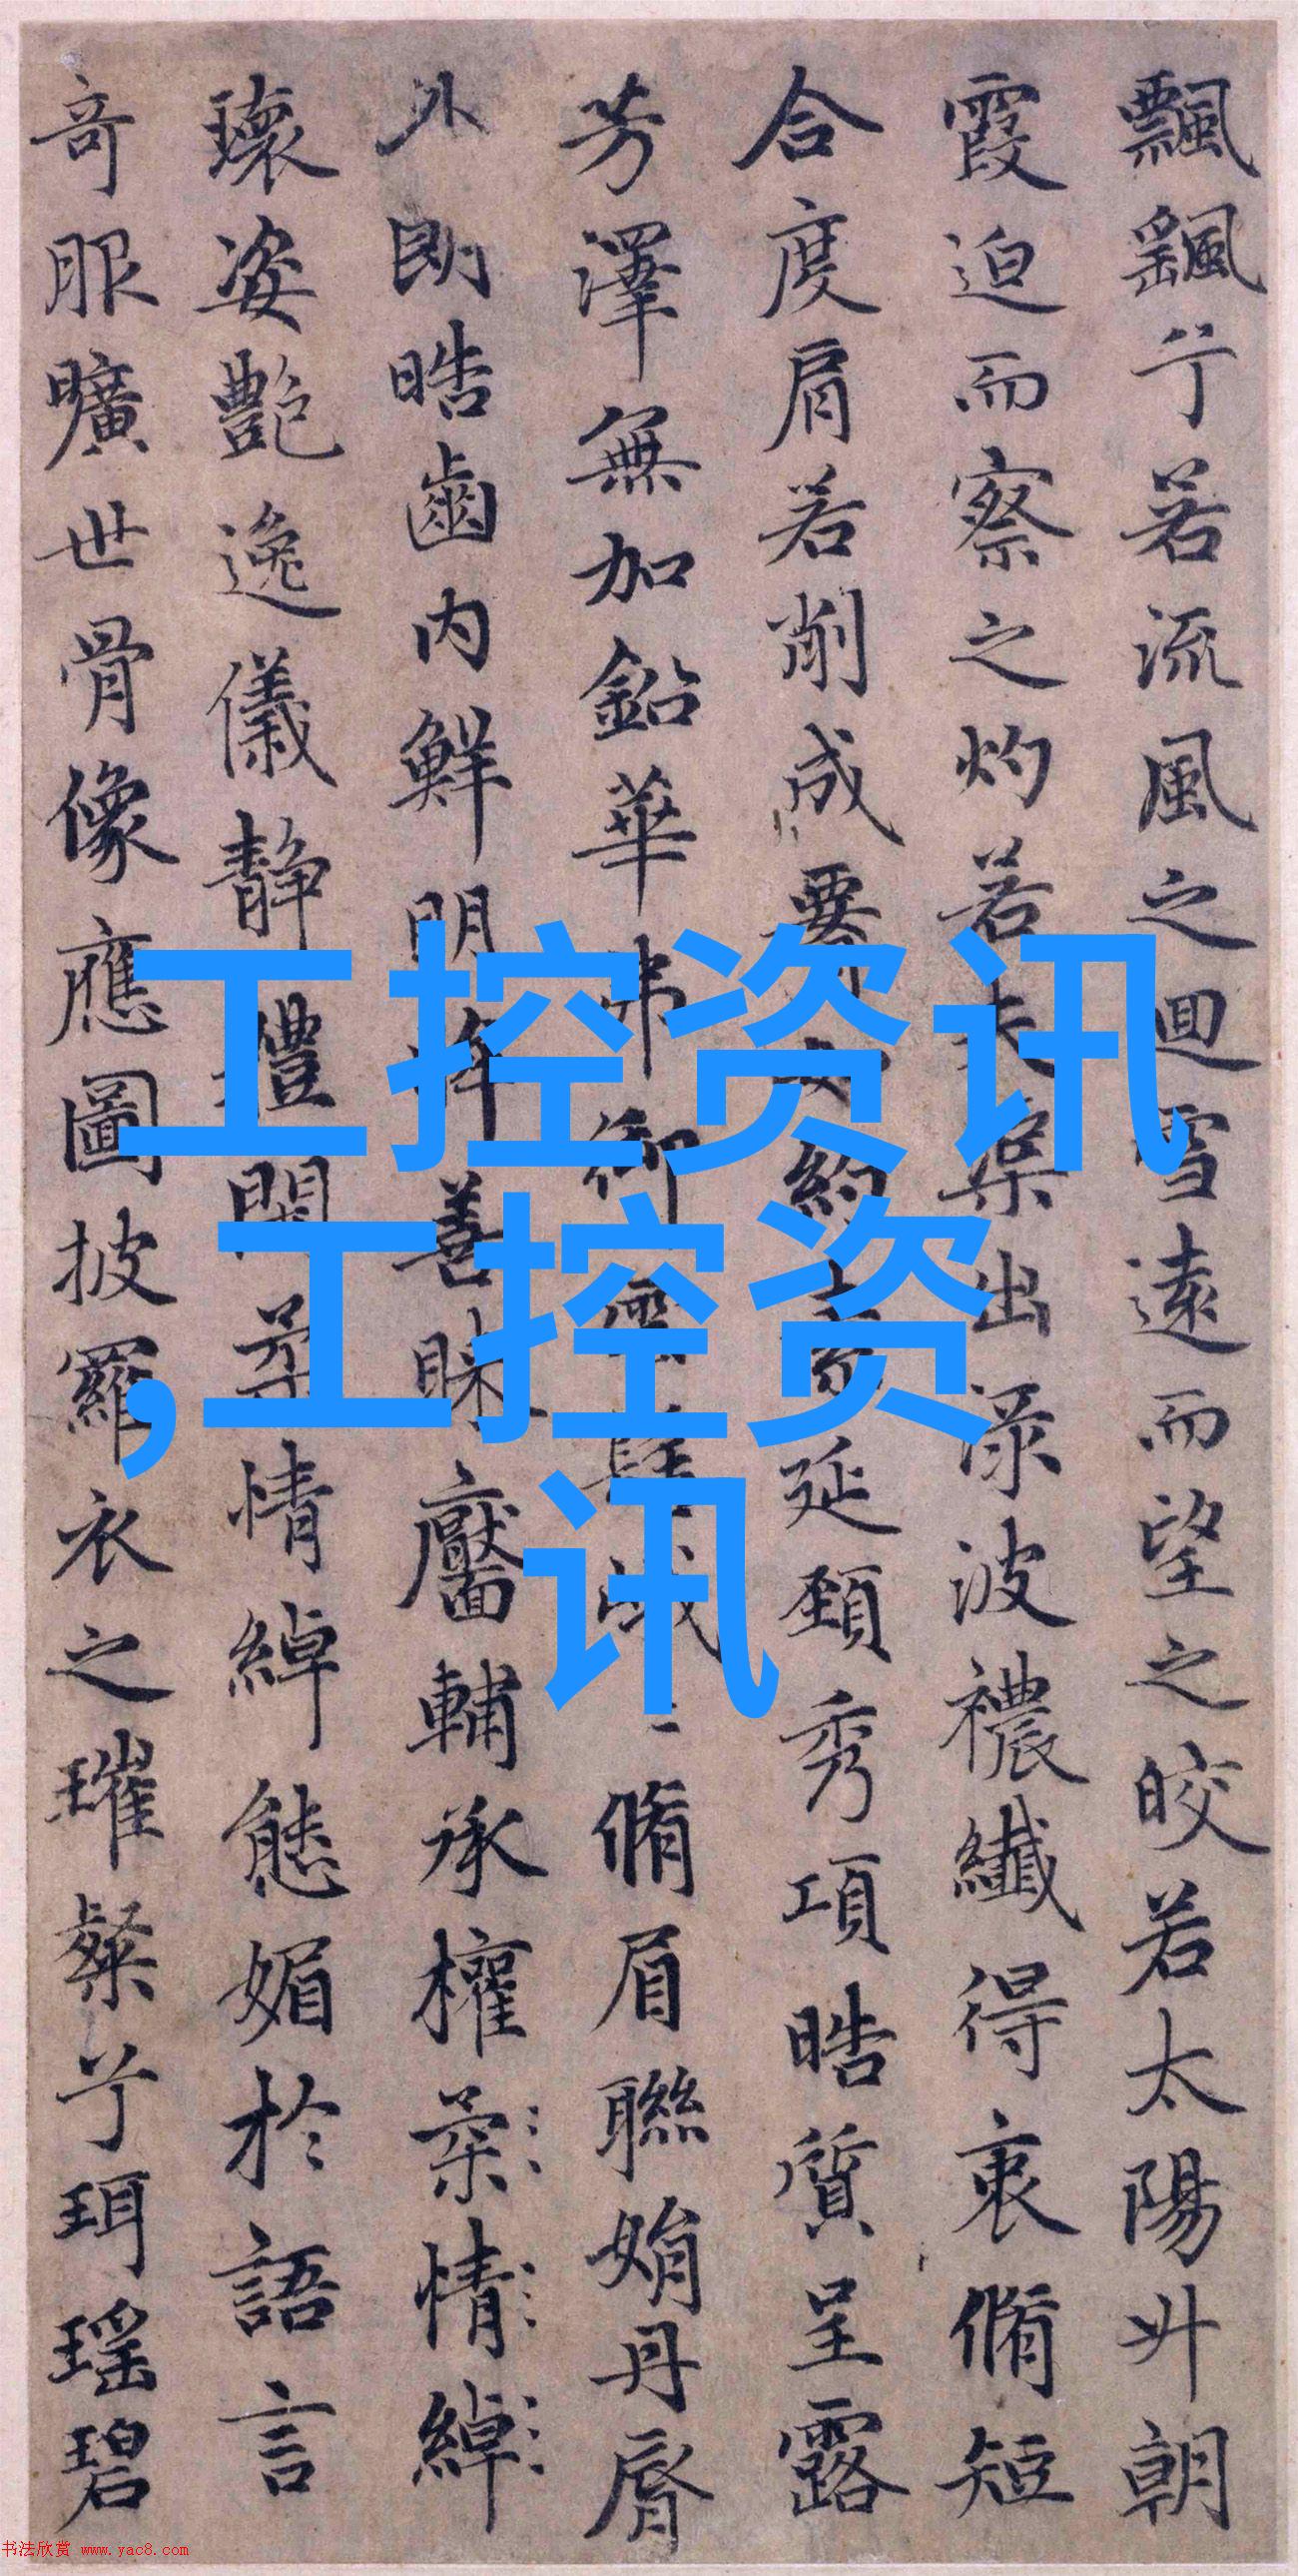 飄飖兮若流風之迴雪遠而望之皎若太陽升朝
霞迫而察之灼若夫蕖出渌波襛纖得衷脩短
合度肩若削成要約延頸秀項皓質呈露
芳澤無加鉛華弗御脩眉聯娟丹脣
外朗皓齒內鮮明眸善睞靨輔承權柔情綽
瓌姿艷逸儀静體閑柔情綽態媚於語言
奇服曠世骨像應圖披羅衣之璀粲兮珥瑶碧
工控资讯
,工控资
讯
书法欣赏 www.yac8.com